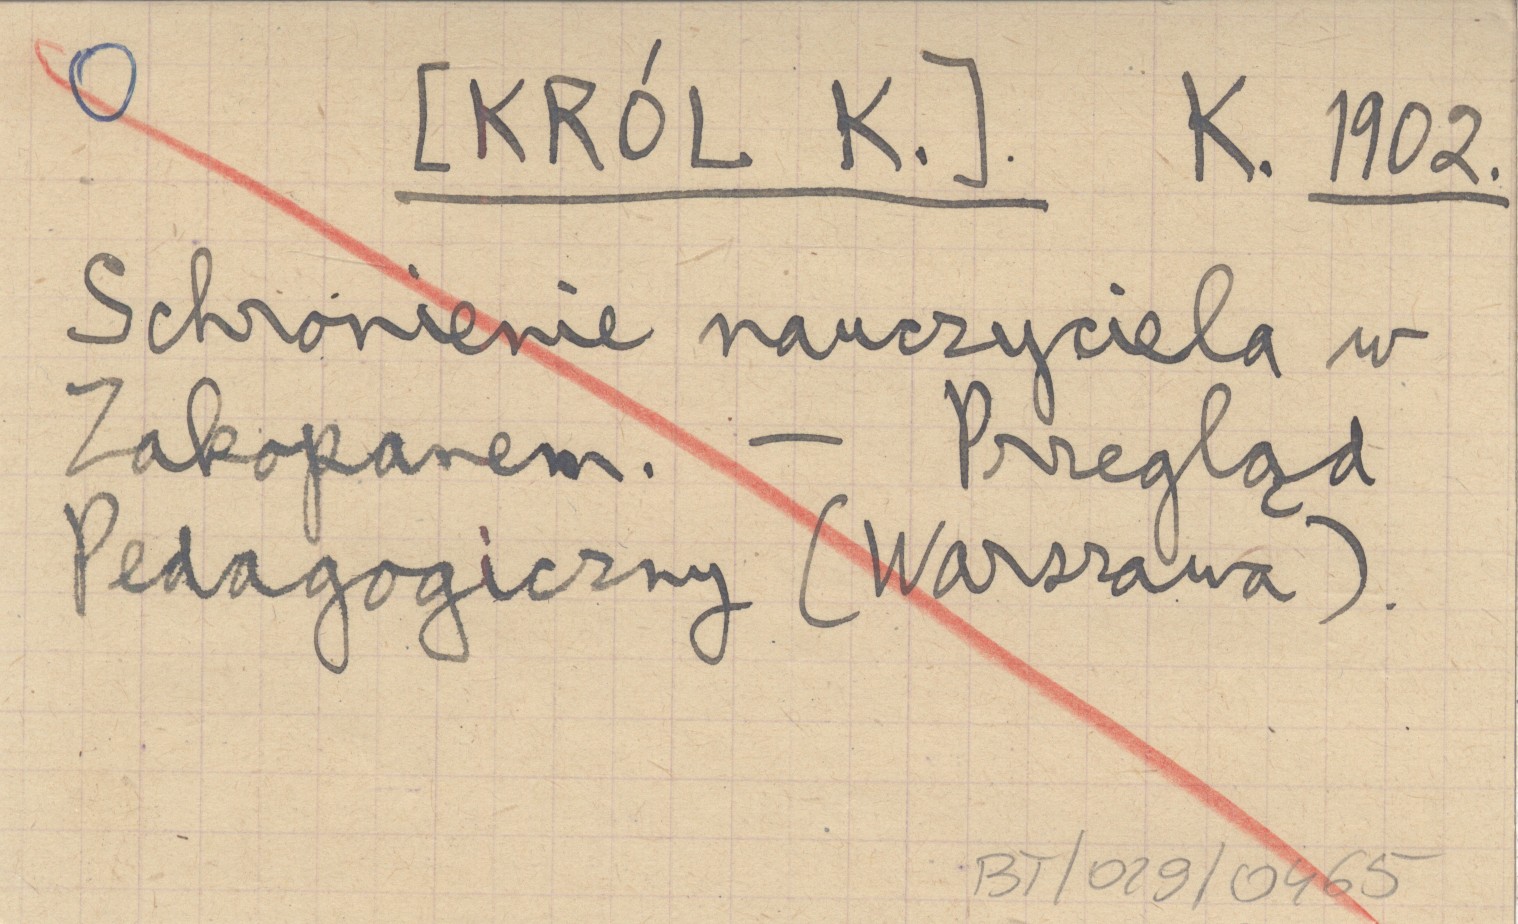 [KRÓL K.]. K. 1902.
Schronienie nauczyciela w
Zakopanem. — Przegląd
Pedagogiczny (Warszawa).
BT/029/0465